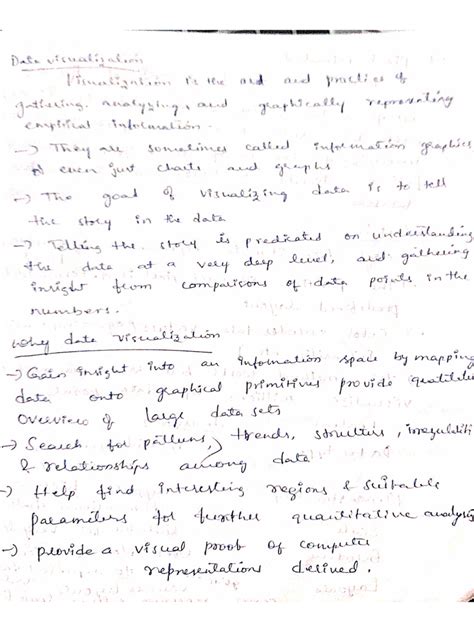 Data visualization
Visualization is the and and practice of
gathering, analyzing, and graphically representing
empirical information.
-> They are sometimes called information graphics
or even just charts and graphs
-> The goal of visualizing data is to tell
the story in the data
-> Telling the story is predicated on understanding
the data at a very deep level, and gathering
insight from comparisons of data points in the
numbers.
Why data visualization
-> Gain insight into an information space by mapping
data onto graphical primitives provide
Overview of large data sets
-> Search for patterns, trends, structure, irregularities
& relationships among data
-> Help find interesting regions & suitable
parameters for further quantitative analysis
-> provide a visual proof of computer
representations derived.